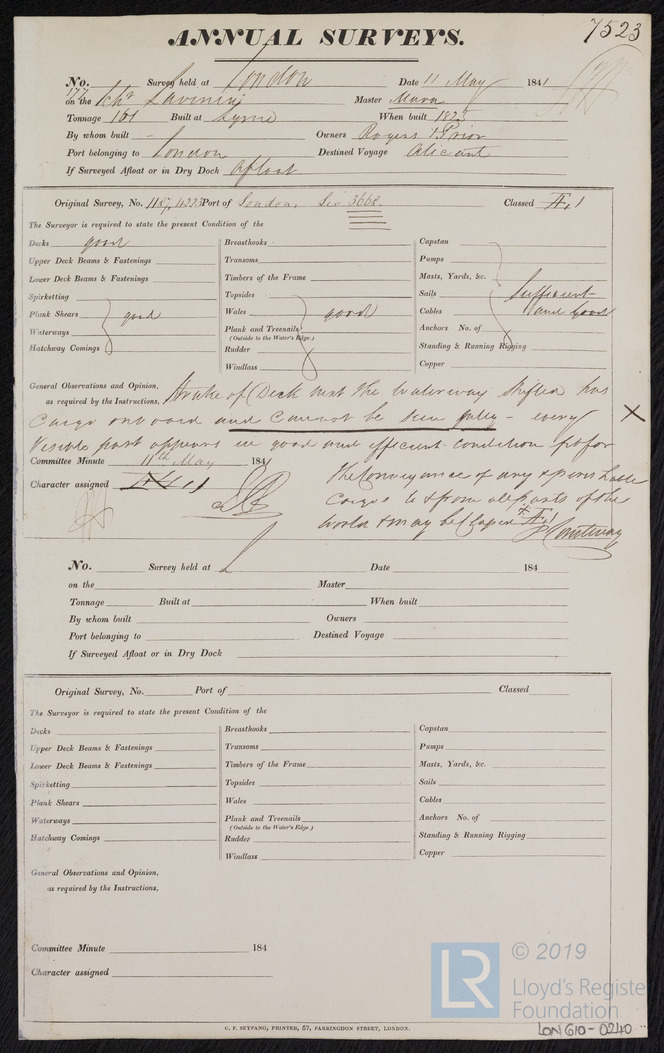 7523
ANNUAL SURVEYS.
No. 177 Survey held at London Date 11 May 1841
on the Schr Lavinia Master Mara
Tonnage 101 Built at Lyme When built 1823
By whom built - Owners Rogers & Prior
Port belonging to London Destined Voyage Alicant
If Surveyed Afloat or in Dry Dock Afloat
Original Survey, No. Port of London, 3668. Classed Æ 1
The Surveyor is required to state the present Condition of the
Decks good Breasthooks Capstan
Upper Deck Beams & Fastenings Transoms Pumps
Lower Deck Beams & Fastenings Timbers of the Frame Masts, Yards, &c.
Spirketting Topsides Sails Sufficient
Plank Shears good Wales good Cables and Good
Waterways Plank and Treenails Anchors No. of
(Outside to the Water's Edge.)
Hatchway Comings Rudder Standing & Running Rigging
Windlass Copper
General Observations and Opinion, Strake of Deck next the Waterway shifted has
as required by the Instructions, Cargo onboard and Cannot be seen fully - every
Visible part appears in good and efficient condition for
Committee Minute 11th May 184 the Conveyance of dry & perishable
Character assigned Æ 1 Cargoes to & from all parts of the
World & may be Classed Æ 1
Courtenay
No. Survey held at Date 184
on the Master
Tonnage Built at When built
By whom built Owners
Port belonging to Destined Voyage
If Surveyed Afloat or in Dry Dock
Original Survey, No. Port of Classed
The Surveyor is required to state the present Condition of the
Decks Breasthooks Capstan
Upper Deck Beams & Fastenings Transoms Pumps
Lower Deck Beams & Fastenings Timbers of the Frame Masts, Yards, &c.
Spirketting Topsides Sails
Plank Shears Wales Cables
Waterways Plank and Treenails Anchors No. of
(Outside to the Water's Edge.)
Hatchway Comings Rudder Standing & Running Rigging
Windlass Copper
General Observations and Opinion,
as required by the Instructions,
Committee Minute 184
Character assigned
LR © 2019
Lloyd's Register
Foundation
LON610-0240
C. F. SEYFANG, PRINTER, 57, FARRINGDON STREET, LONDON.